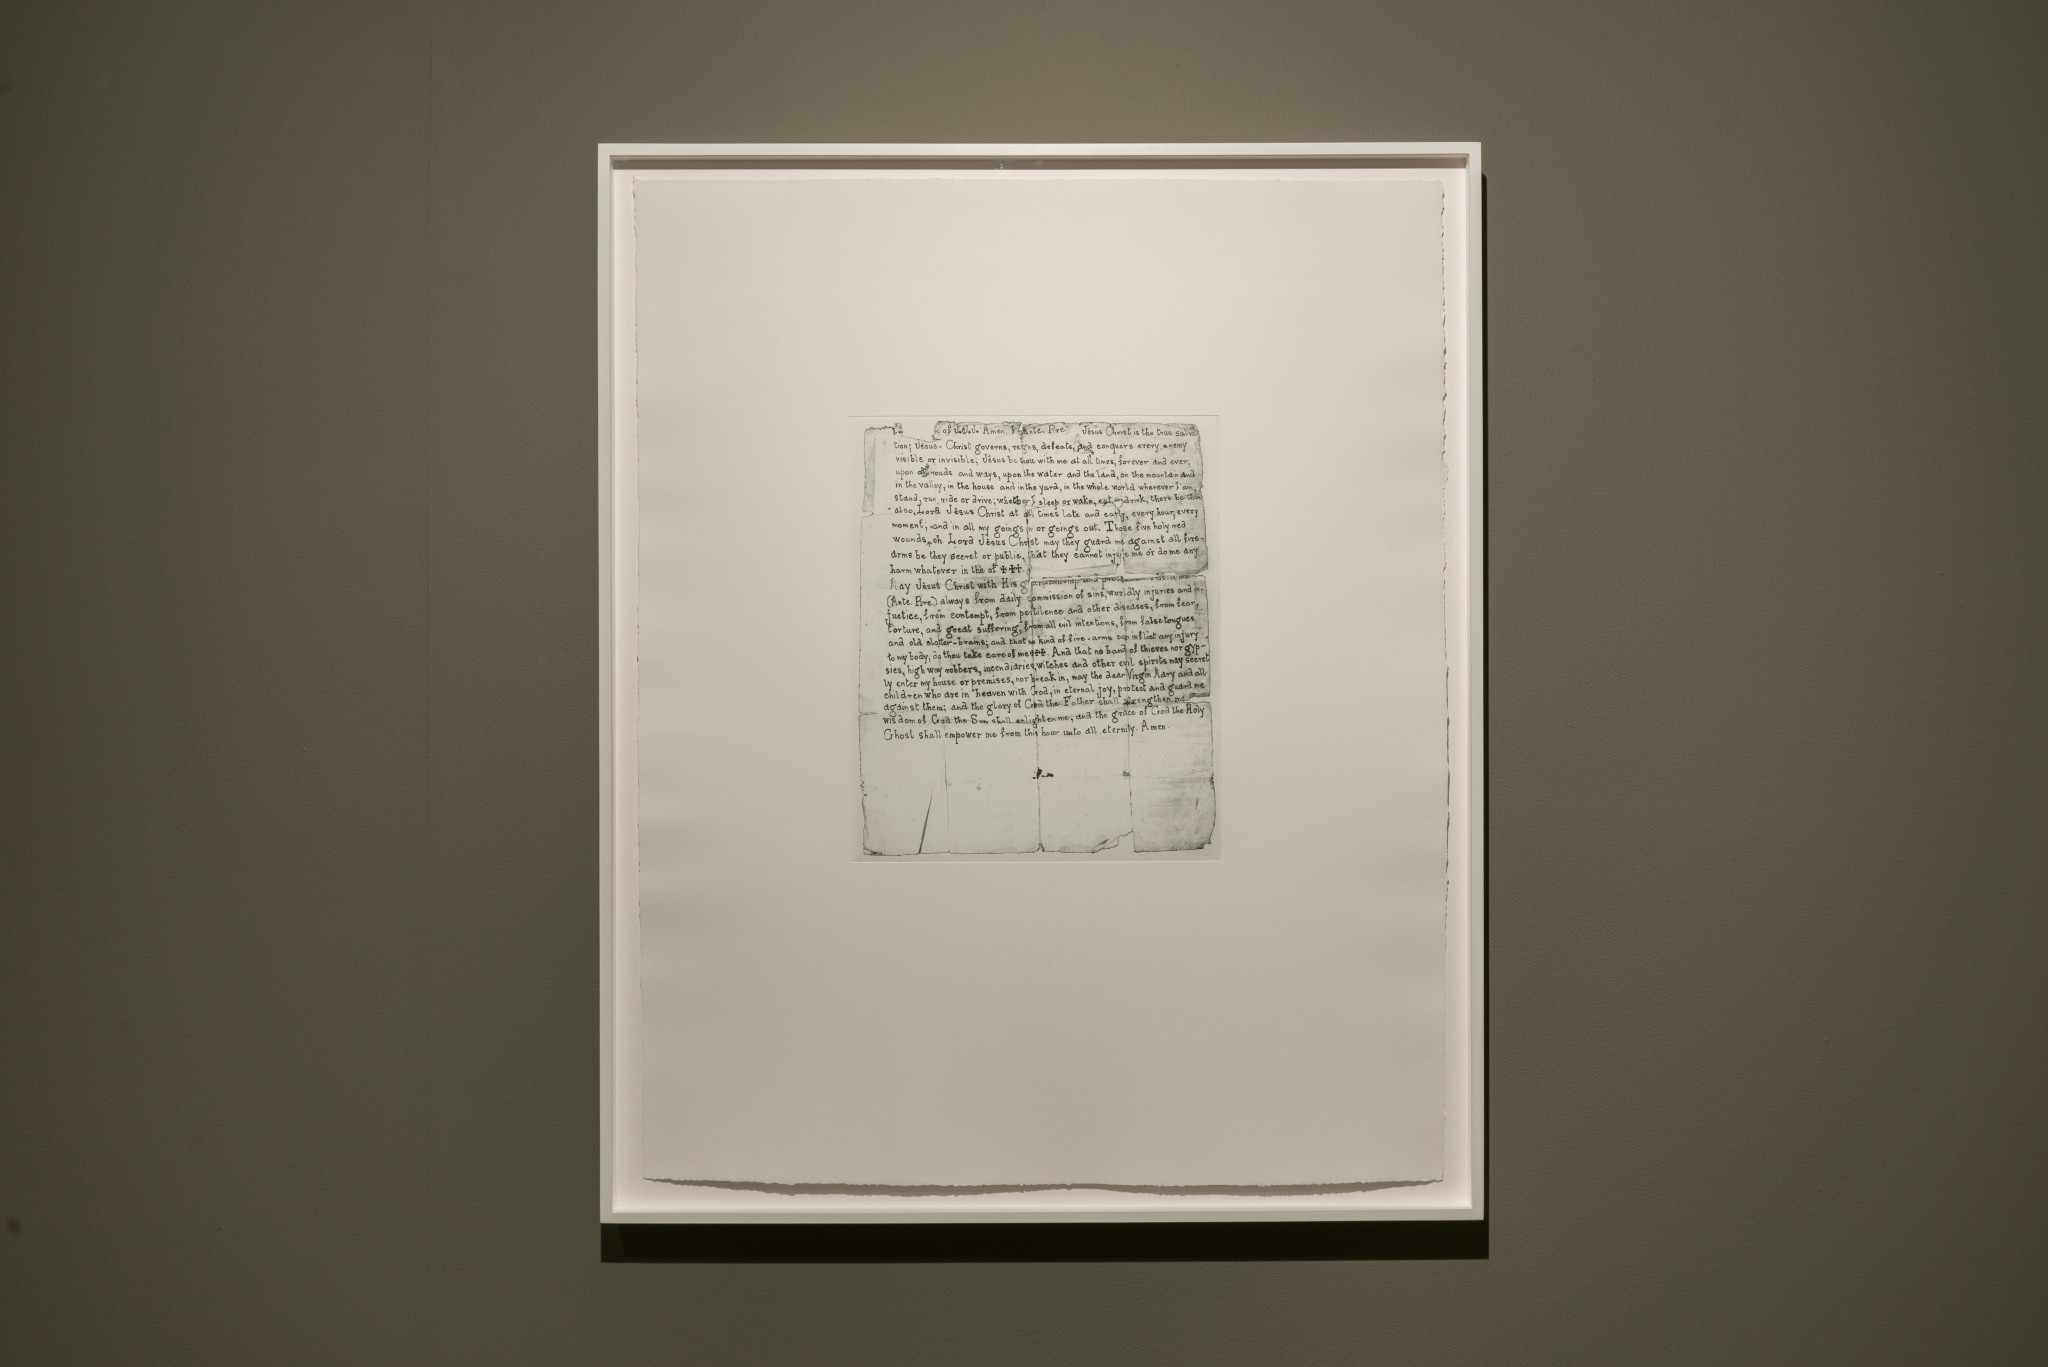 In of the Amen. Ante. Pire. Jèsus Christ is the true salva-
tion; Jèsus- Christ governs, reigns, defeats, and conquers every enemy
visible or invisible; Jèsus be thou with me at all times, forever and ever,
upon all roads and ways, upon the water and the land, on the mountain and
in the valley, in the house and in the yard, in the whole world wherever I am,
stand, run ride or drive; whether I sleep or wake, eat or drink, there be thou
also, Lord Jèsus Christ at all times late and early, every hour, every
moment; and in all my goings in or goings out. Those five holy red
wounds, oh Lord Jèsus Christ may they guard me against all fire-
arms be they secret or public, that they cannot injure me or do me any
harm whatever in the of ✝✝✝.
May Jèsus Christ with His guardianship and
(Ante. Pire.) always from daily commission of sins, worldly injuries and in-
justice, from contempt, from pestilence and other diseases, from fear,
torture, and great suffering, from all evil intentions, from false tongues,
and old clatter-brains; and that no kind of fire-arms can inflict any injury
to my body, do thou take care of me ✝✝✝. And that no band of thieves nor gyp-
sies, high way robbers, incendiaries, witches and other evil spirits may secret
ly enter my house or premises, nor break in, may the dear Virgin Mary and all
children who are in heaven with God, in eternal joy, protect and guard me
against them; and the glory of God the Father shall strengthen me
wisdom of God the Son shall enlighten me, and the grace of God the Holy
Ghost shall empower me from this hour unto all eternity. Amen.